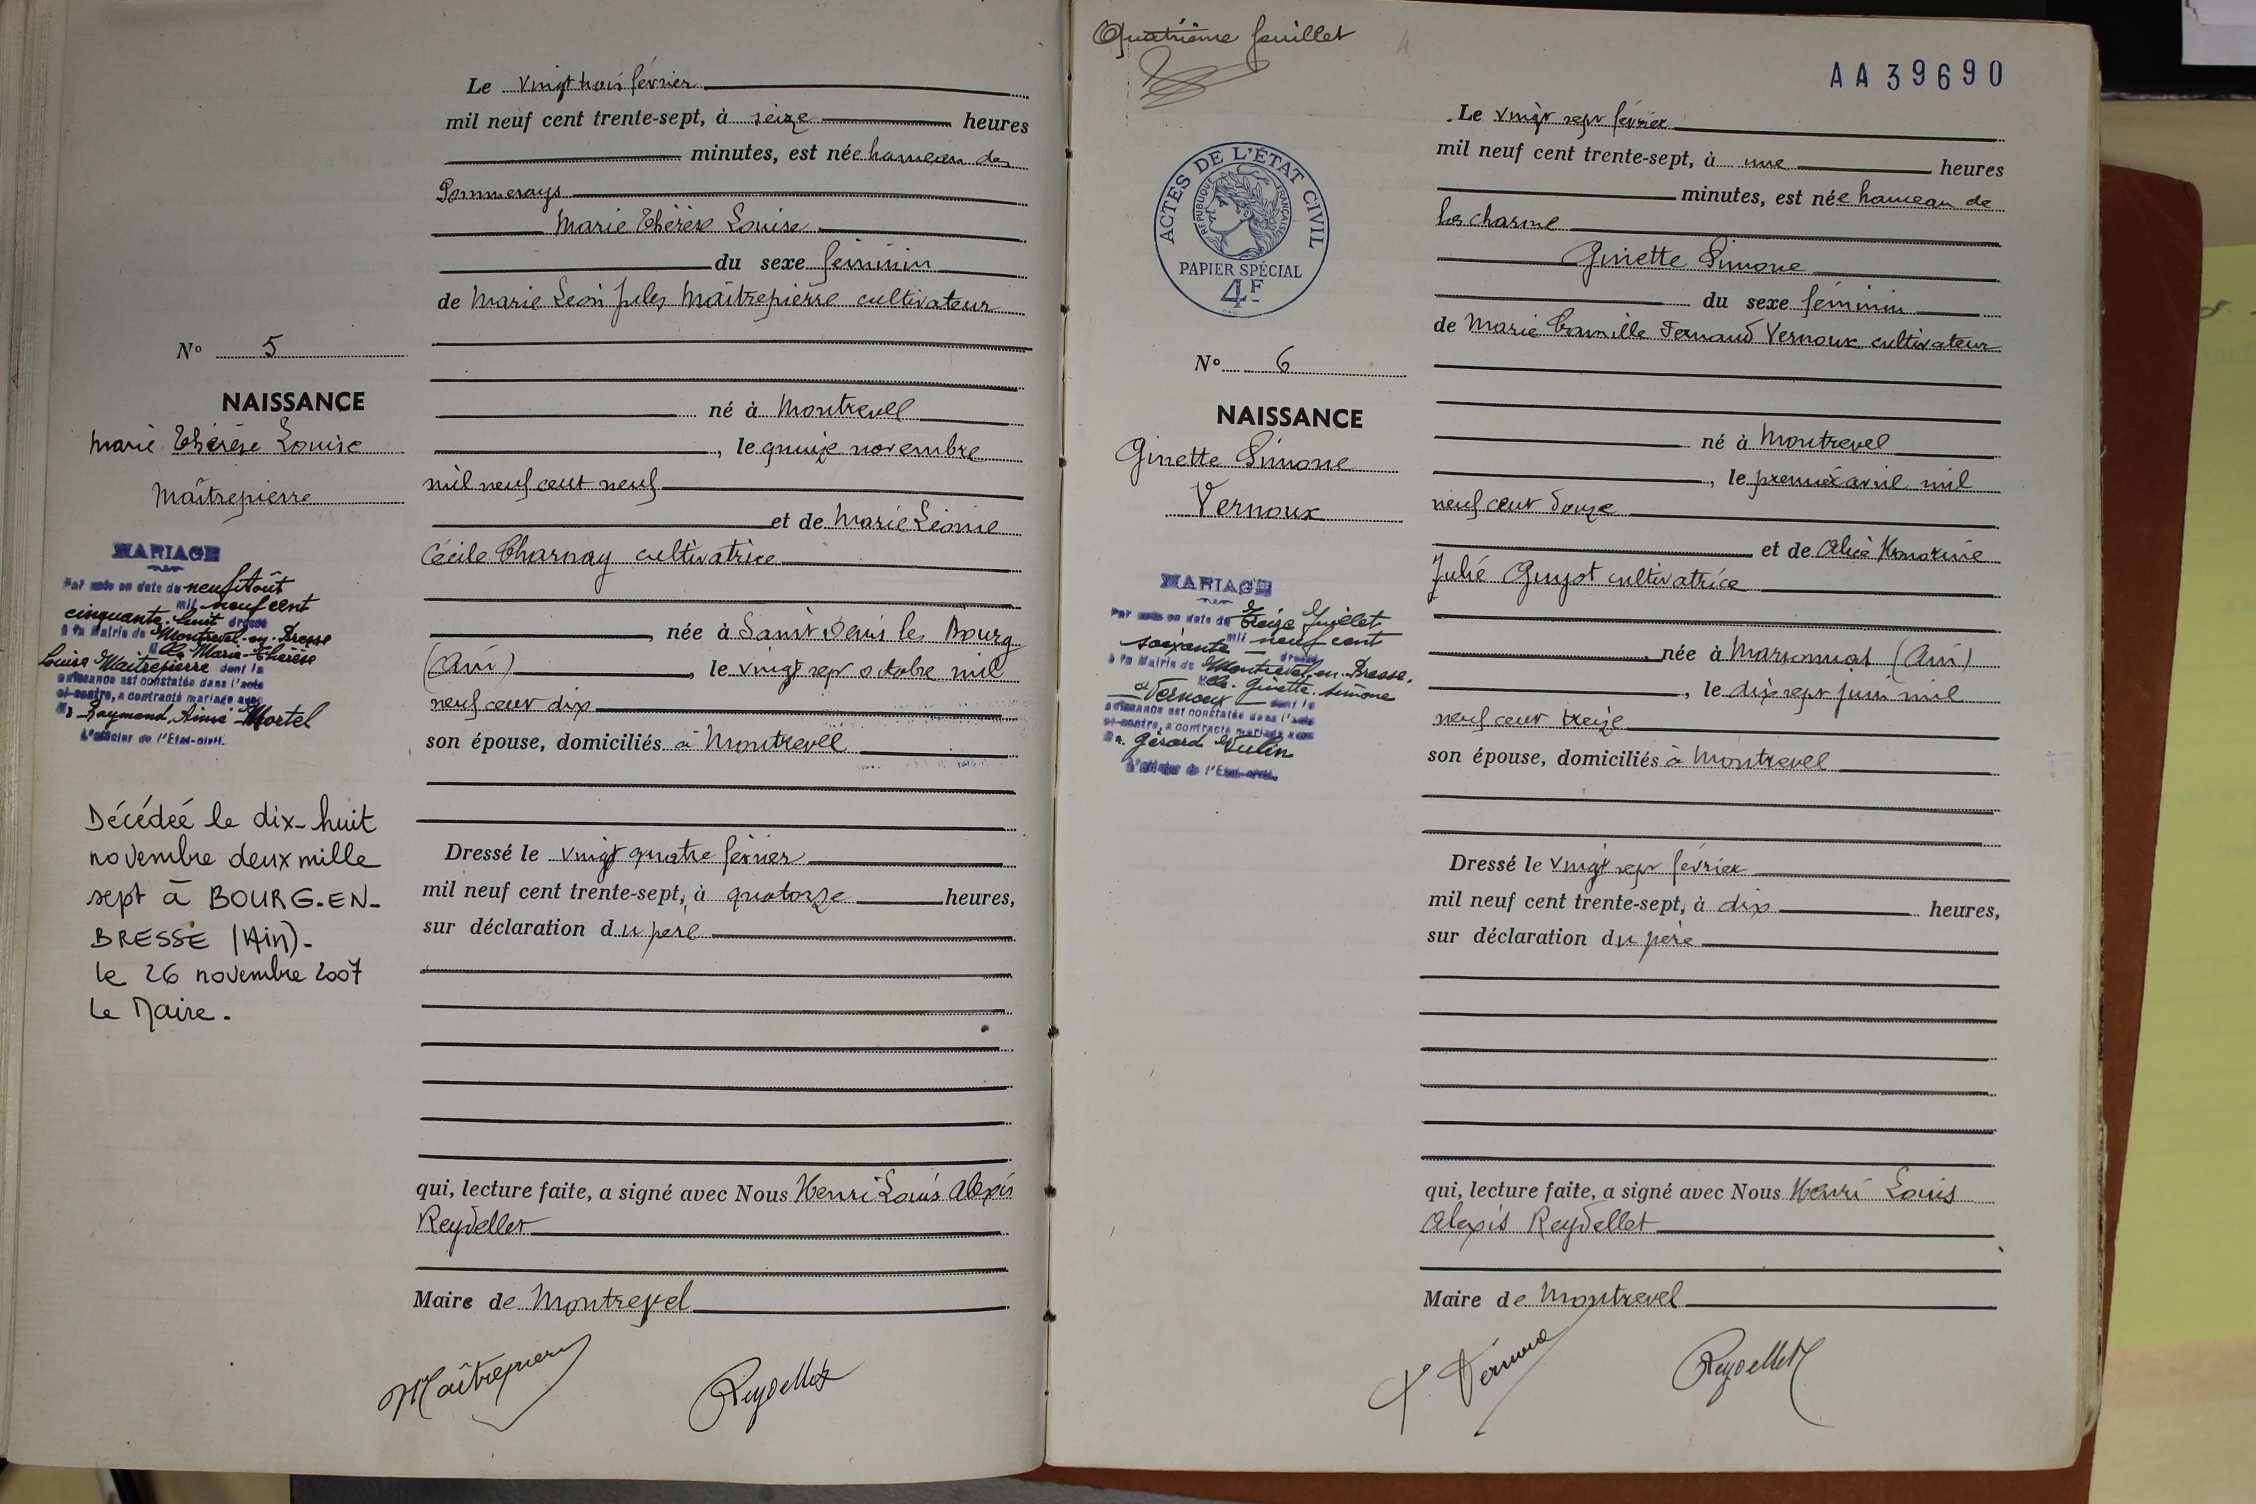 Le vingt trois février
mil neuf cent trente-sept, à seize heures
minutes, est née hameau des
Pommerays
Marie Thérèse Louise
du sexe féminin
de Marie Léon Jules Maîtrepierre cultivateur
né à Montrevel
, le quinze novembre
mil neuf cent neuf
et de Marie Léonie
Cécile Charnay cultivatrice
, née à Saint Denis les Bourg
(Ain) , le vingt sept octobre mil
neuf cent dix
son épouse, domiciliés à Montrevel
Dressé le vingt quatre février
mil neuf cent trente-sept, à quatorze heures,
sur déclaration du père
qui, lecture faite, a signé avec Nous Henri Louis Alexis
Reydellet
Maire de Montrevel
Maîtrepierre
Reydellet
N° 5
NAISSANCE
Marie Thérèse Louise
Maîtrepierre
MARIAGE
Par acte en date du neuf Août
mil neuf cent
cinquante-huit dressé
à la Mairie de Montrevel-en-Bresse
Marie-Thérèse
Louise Maitrepierre dont la
naissance est constatée dans l'acte
ci-contre, a contracté mariage avec
Mr Raymond, Aimé Mortel
L'officier de l'Etat-civil.
Décédée le dix-huit
novembre deux mille
sept à BOURG-EN-
BRESSE (Ain)-
le 26 novembre 2007
Le Maire.
Quatrième feuillet
4
AA39690
ACTES DE L'ÉTAT CIVIL
RÉPUBLIQUE FRANÇAISE
PAPIER SPÉCIAL
4F
Le vingt sept février
mil neuf cent trente-sept, à une heures
minutes, est née hameau de
la charme
Ginette Simone
du sexe féminin
de Marie Camille Fernand Vernoux cultivateur
né à Montrevel
, le premier avril mil
neuf cent douze
et de Alice Honorine
Julie Guyot cultivatrice
née à Marsonnas (Ain)
, le dix sept juin mil
neuf cent treize
son épouse, domiciliés à Montrevel
Dressé le vingt sept février
mil neuf cent trente-sept, à dix heures,
sur déclaration du père
qui, lecture faite, a signé avec Nous Henri Louis
Alexis Reydellet
Maire de Montrevel
F. Vernoux
Reydellet
N° 6
NAISSANCE
Ginette Simone
Vernoux
MARIAGE
Par acte en date du Treize Juillet
mil neuf cent
soixante dressé
à la Mairie de Montrevel-en-Bresse.
Ginette Simone
Vernoux dont la
naissance est constatée dans l'acte
ci-contre, a contracté mariage avec
Mr. Gérard Vulin
L'officier de l'Etat-civil.